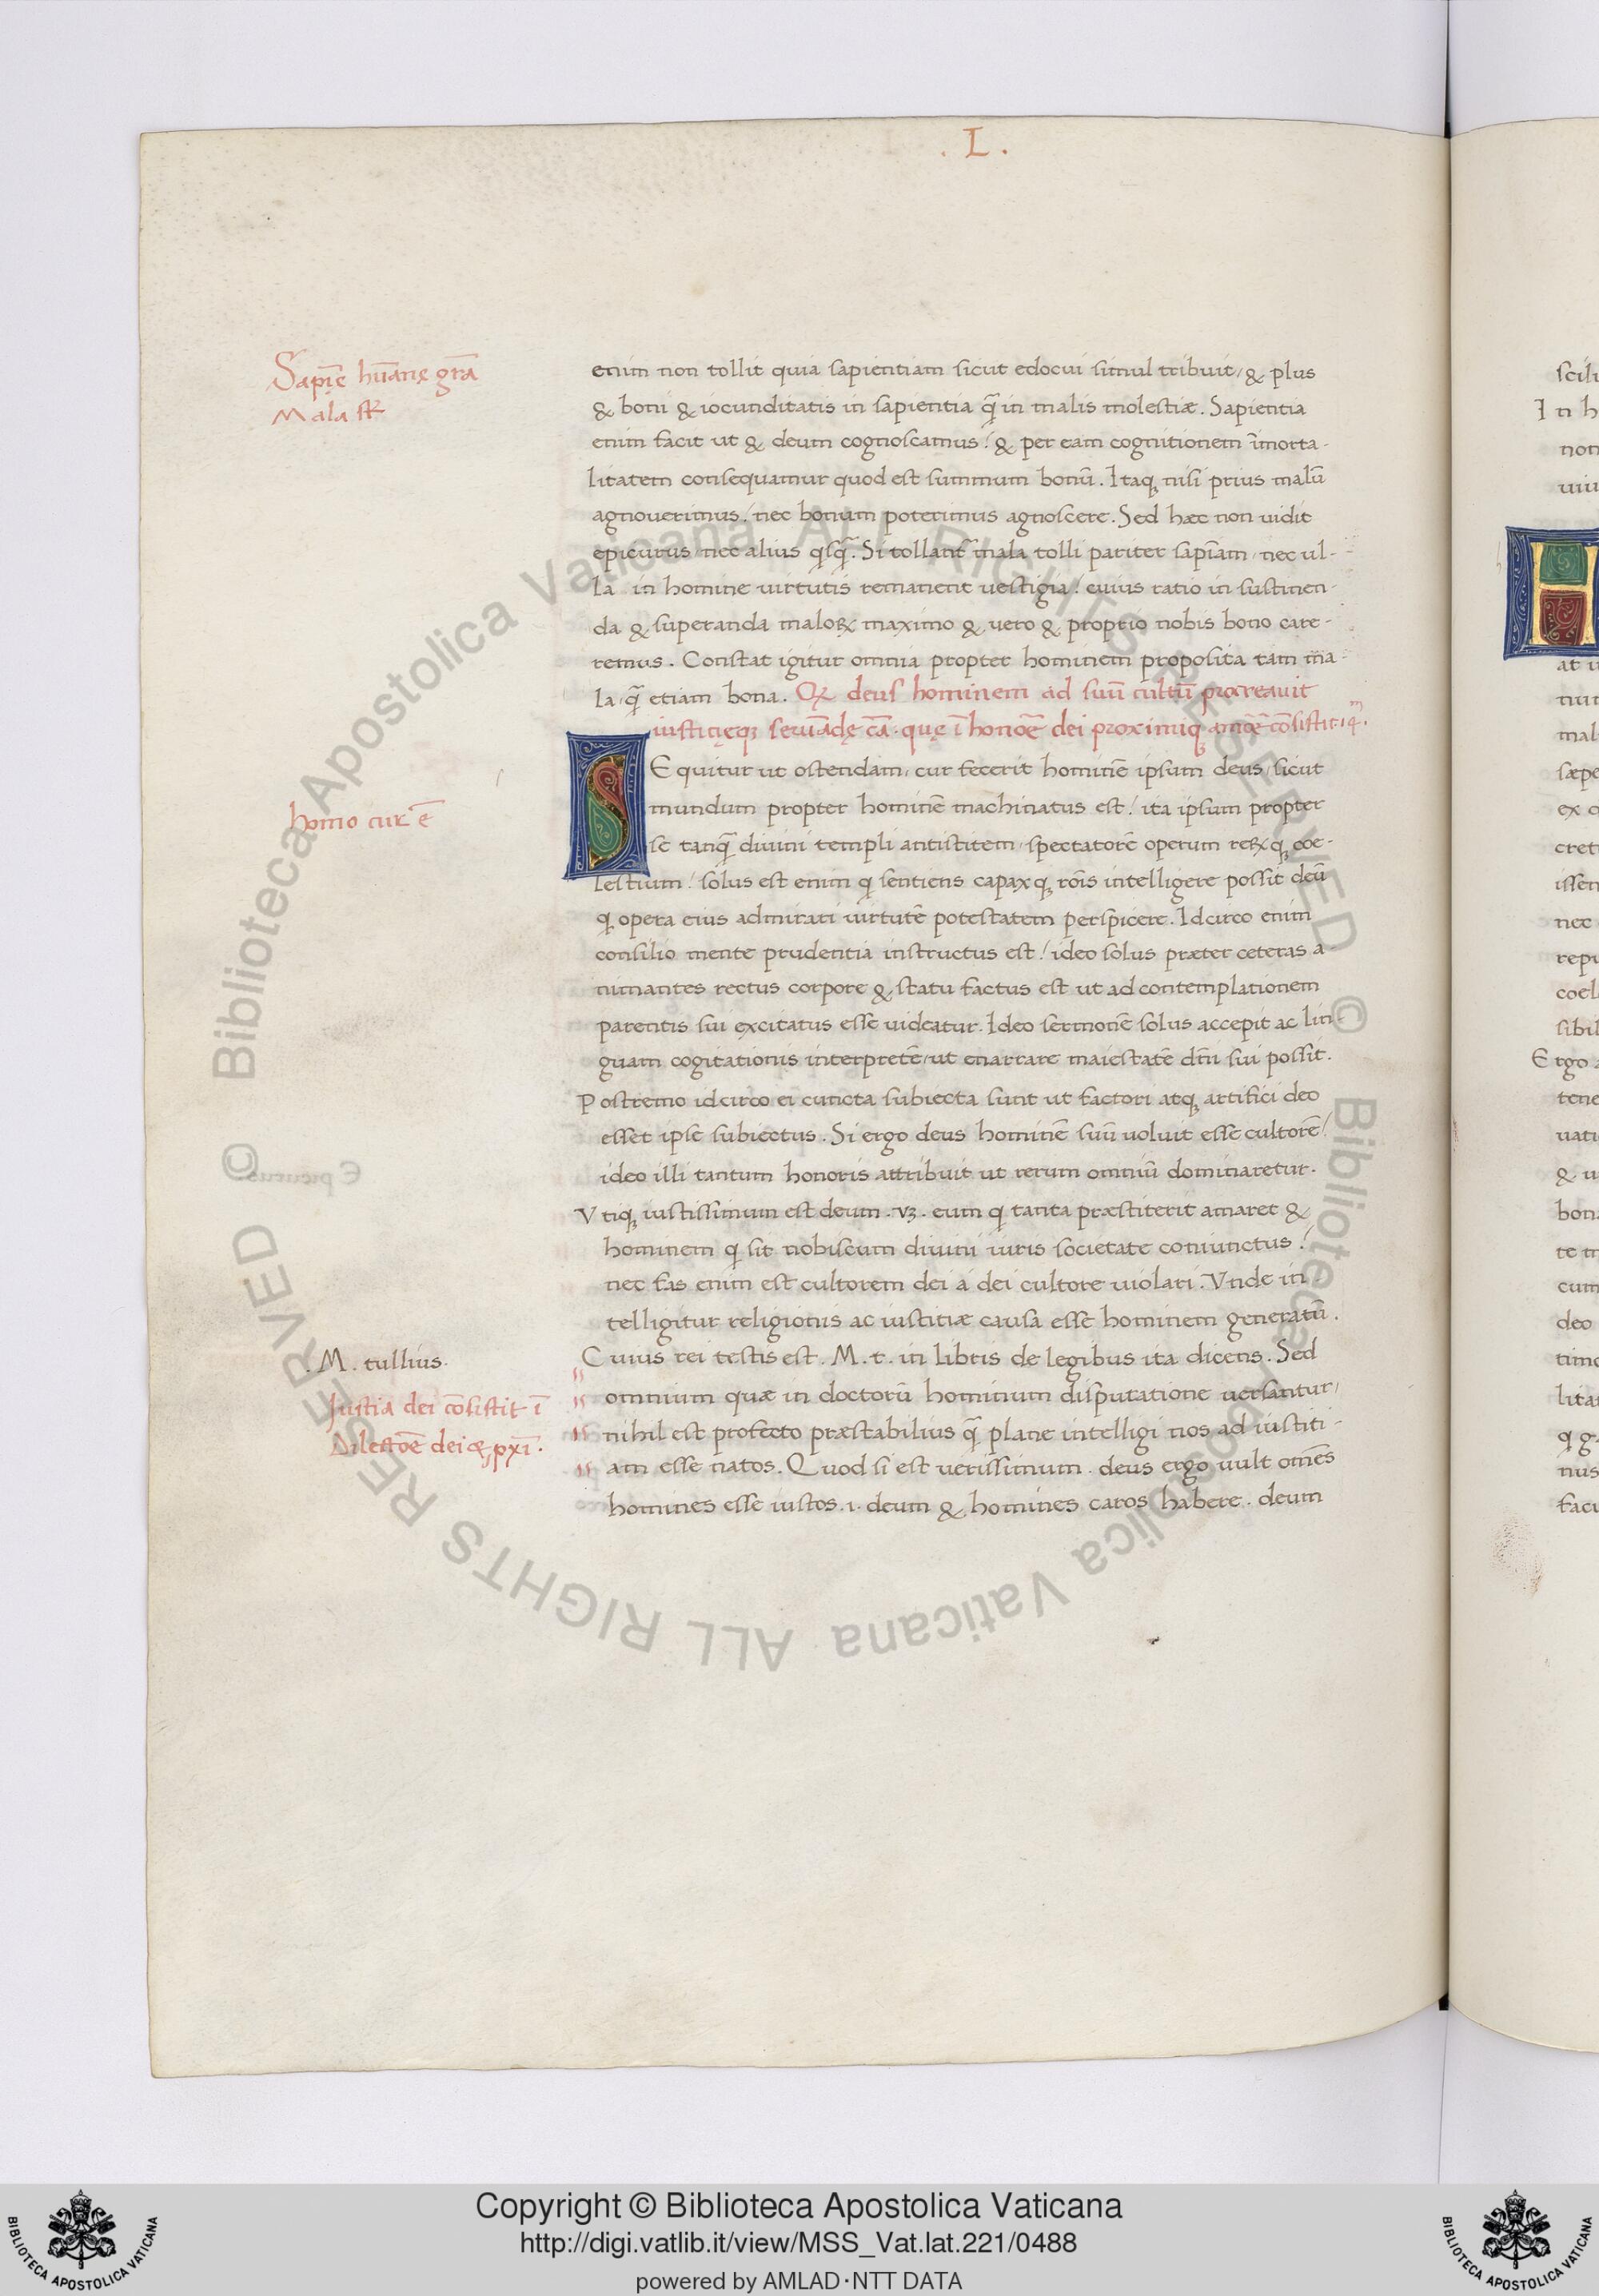 . L .
Sapīe hūanę gr̄a
Mala st̄
enim non tollit quia sapientiam sicut edocui simul tribuit / & plus
& boni & iocunditatis in sapientia q̄ in malis molestiæ. Sapientia
enim facit ut & deum cognoscamus / & per eam cognitionem īmorta-
litatem consequamur quod est summum bonū. Itaq; nisi prius malū
agnouerimus / nec bonum poterimus agnoscere. Sed hæc non uidit
epicurus / nec alius qsq̄. Si tollant̄ mala tolli pariter sapīam / nec ul-
la in homine uirtutis remanent uestigia / cuius ratio in sustinen-
da & superanda maloꝝ maximo & uero & proprio nobis bono care-
remus. Constat igitur omnia propter hominem proposita tam ma-
la q̄ etiam bona. Qꝫ deus hominem ad suū cultū procreauit
iusticięqꝫ seruādę cā. quę ī honoē dei proximiq; amoē cōsistit. 14.m
Homo cur ē
SEquitur ut ostendam / cur fecerit hominē ipsum deus / sicut
mundum propter hominē machinatus est / ita ipsum propter
se tanq̄ diuini templi antistitem / spectatorē operum reꝝq; coe-
lestium / solus est enim q sentiens capaxq; rōis intelligere possit deū
q opera eius admirari uirtutē potestatem perspicere. Idcirco enim
consilio mente prudentia instructus est / ideo solus præter ceteras a-
nimantes rectus corpore & statu factus est ut ad contemplationem
parentis sui excitatus esse uideatur. Ideo sermonē solus accepit ac lin-
guam cogitationis interpretē / ut enarrare maiestatē dn̄i sui possit.
Postremo idcirco ei cuncta subiecta sunt ut factori atq; artifici deo
esset ipse subiectus. Si ergo deus hominē suū uoluit esse cultorē /
ideo illi tantum honoris attribuit ut rerum omniū dominaretur.
Vtiq; iustissimum est deum .uꝫ. eum q tanta præstiterit amaret &
hominem q sit nobiscum diuini iuris societate coniunctus /
nec fas enim est cultorem dei á dei cultore uiolari. Vnde in
telligitur religionis ac iustitiæ causa esse hominem generatū.
. M. tullius.
Cuius rei testis est. M. t. in libris de legibus ita dicens. Sed
Justia dei cōsistit ī
omnium quæ in doctorū hominum disputatione uersantur /
Dilectōē dei & pxī.
nihil est profecto præstabilius q̄ plane intelligi nos ad iustiti-
am esse natos. Quod si est uerissimum. deus ergo uult om̄es
homines esse iustos .i. deum & homines caros habere. deum
© Biblioteca Apostolica Vaticana ALL RIGHTS RESERVED
© Biblioteca Apostolica Vaticana ALL RIGHTS RESERVED
Copyright © Biblioteca Apostolica Vaticana
http://digi.vatlib.it/view/MSS_Vat.lat.221/0488
powered by AMLAD·NTT DATA
BIBLIOTECA APOSTOLICA VATICANA
BIBLIOTECA APOSTOLICA VATICANA